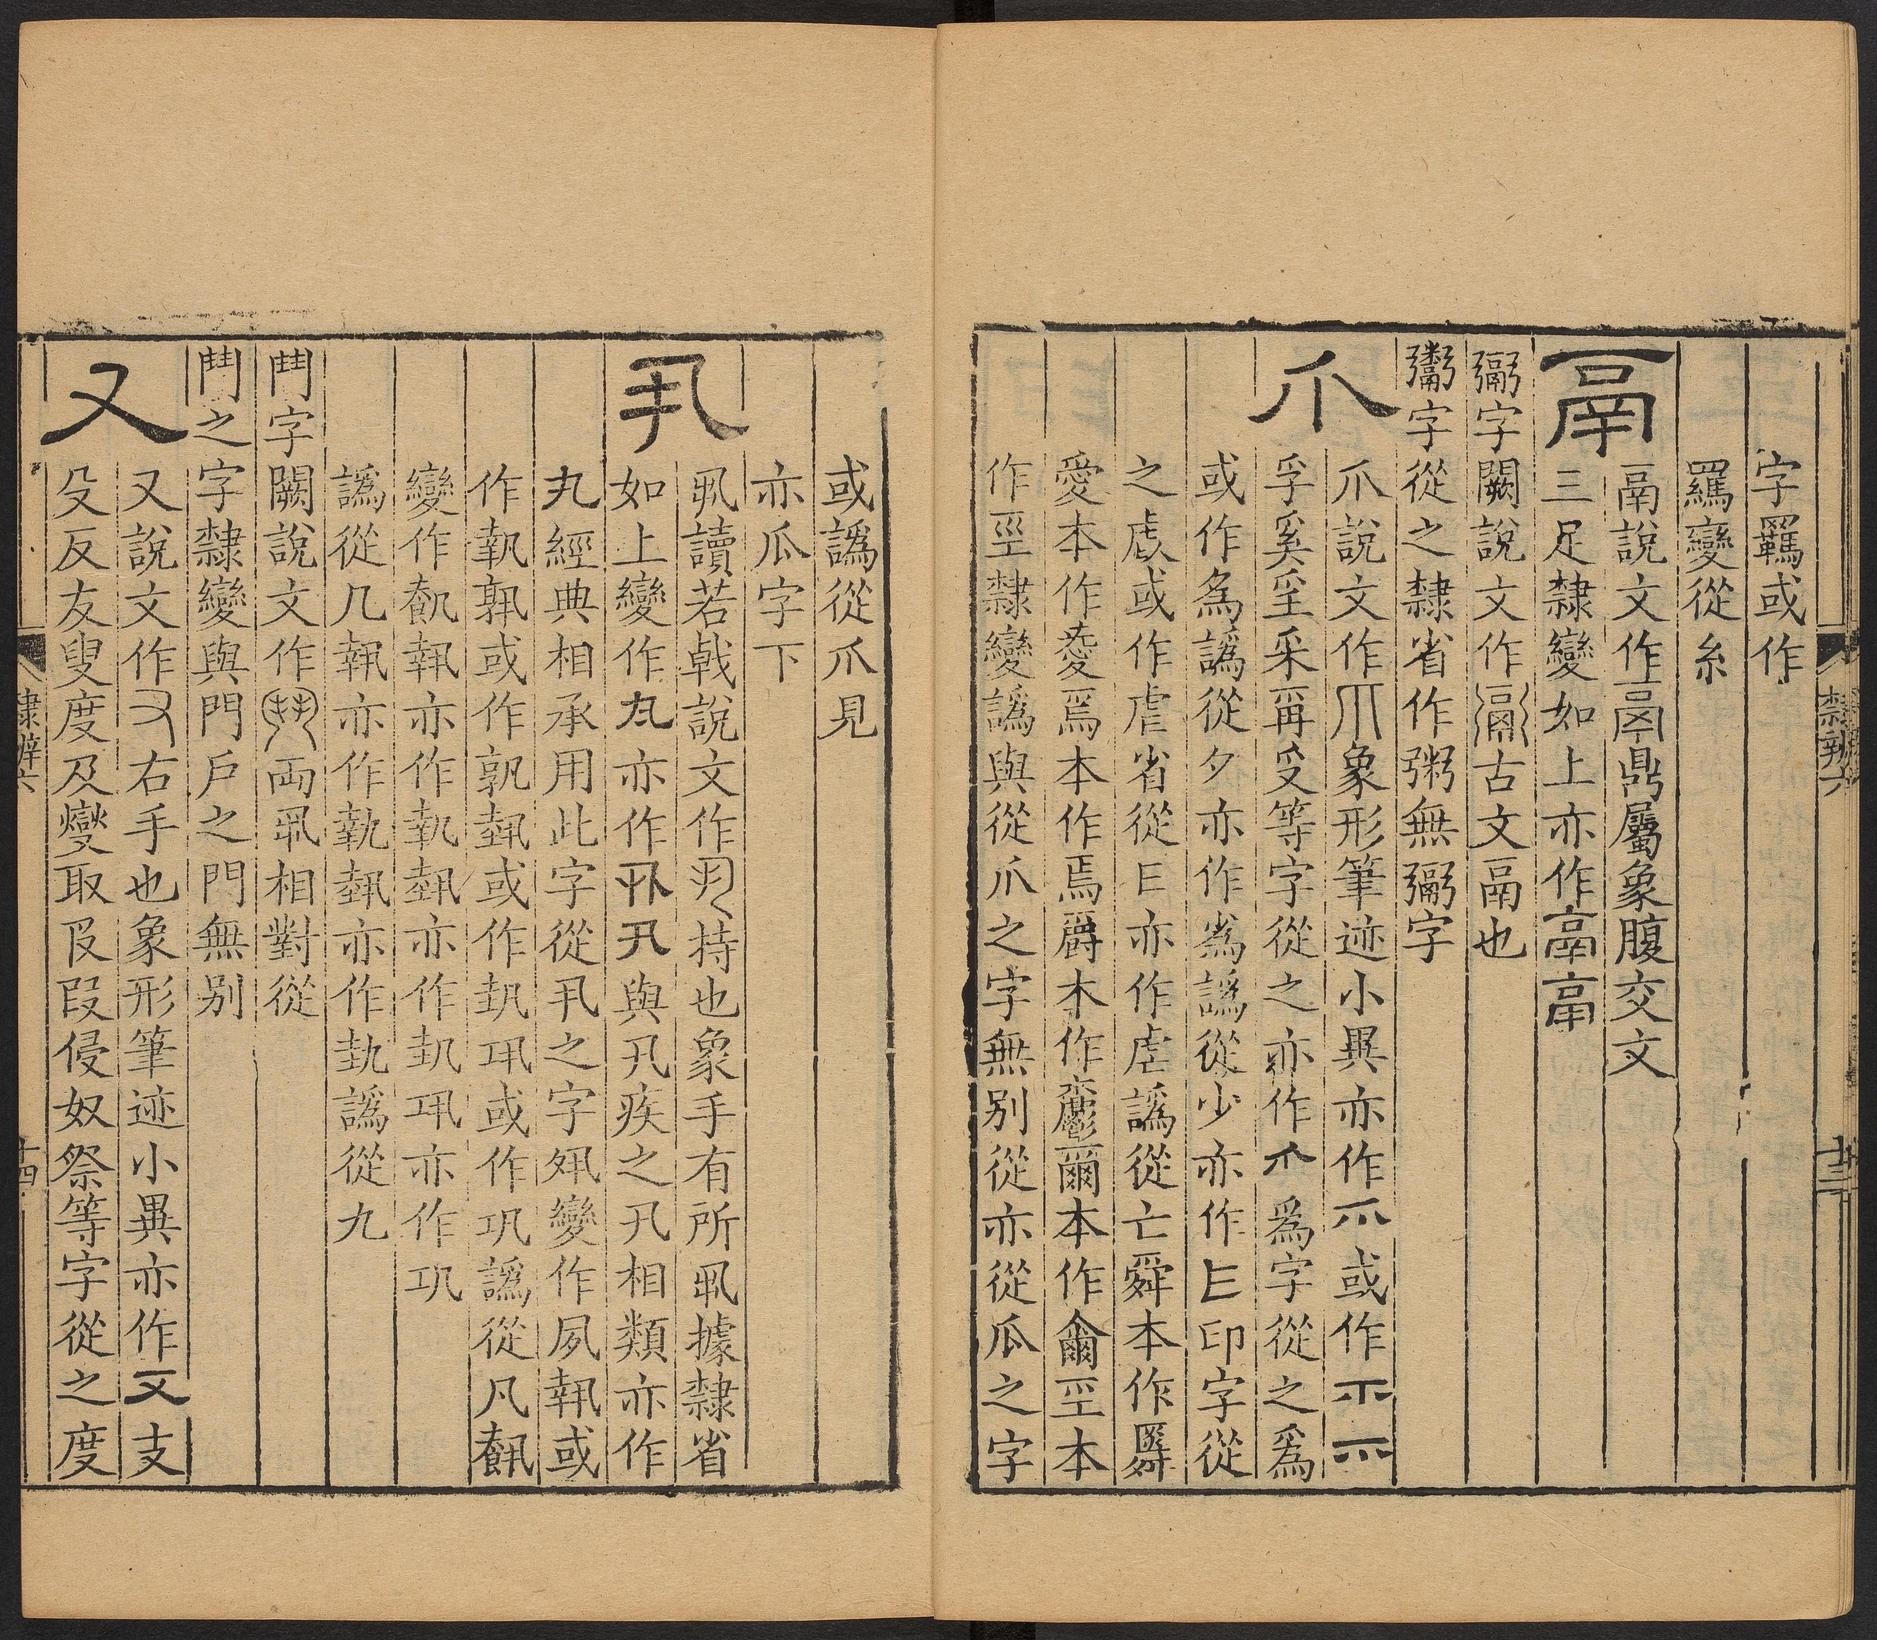 字羈或作
羈變從糸
鬲
鬲說文作鬲鼎屬象腹交文
三足隸變如上亦作鬲鬲
䰜字闕說文作䰜古文鬲也
鬻字從之隸省作粥無䰜字
爪
爪說文作爪象形筆迹小異亦作爫或作
孚奚坙采爯受等字從之亦作爫爲字從之爲
或作為譌從夕亦作為譌從少亦作㠯印字從
之虐或作虐省從㠯亦作虐譌從亡舜本作
愛本作㤅焉本作焉爵本作爾本作坙本
作坙隸變譌與從爪之字無別從亦從瓜之字
或譌從爪見
亦瓜字下
丮
丮讀若戟說文作丮持也象手有所丮據隸省
如上變作丸亦作丮與卂疾之卂相類亦作
丸經典相承用此字從丮之字夙變作夙執或
作執孰或作孰埶或作埶巩或作巩譌從凡
變作執亦作執埶亦作埶巩亦作巩
譌從几執亦作執埶亦作埶譌從九
鬥字闕說文作鬥兩丮相對從
鬥之字隸變與門戶之門無別
又
又說文作又右手也象形筆迹小異亦作又支
殳反友叟度及燮取𠬝叚侵奴祭等字從之度
隸辨六
十三
隸辨六
十四